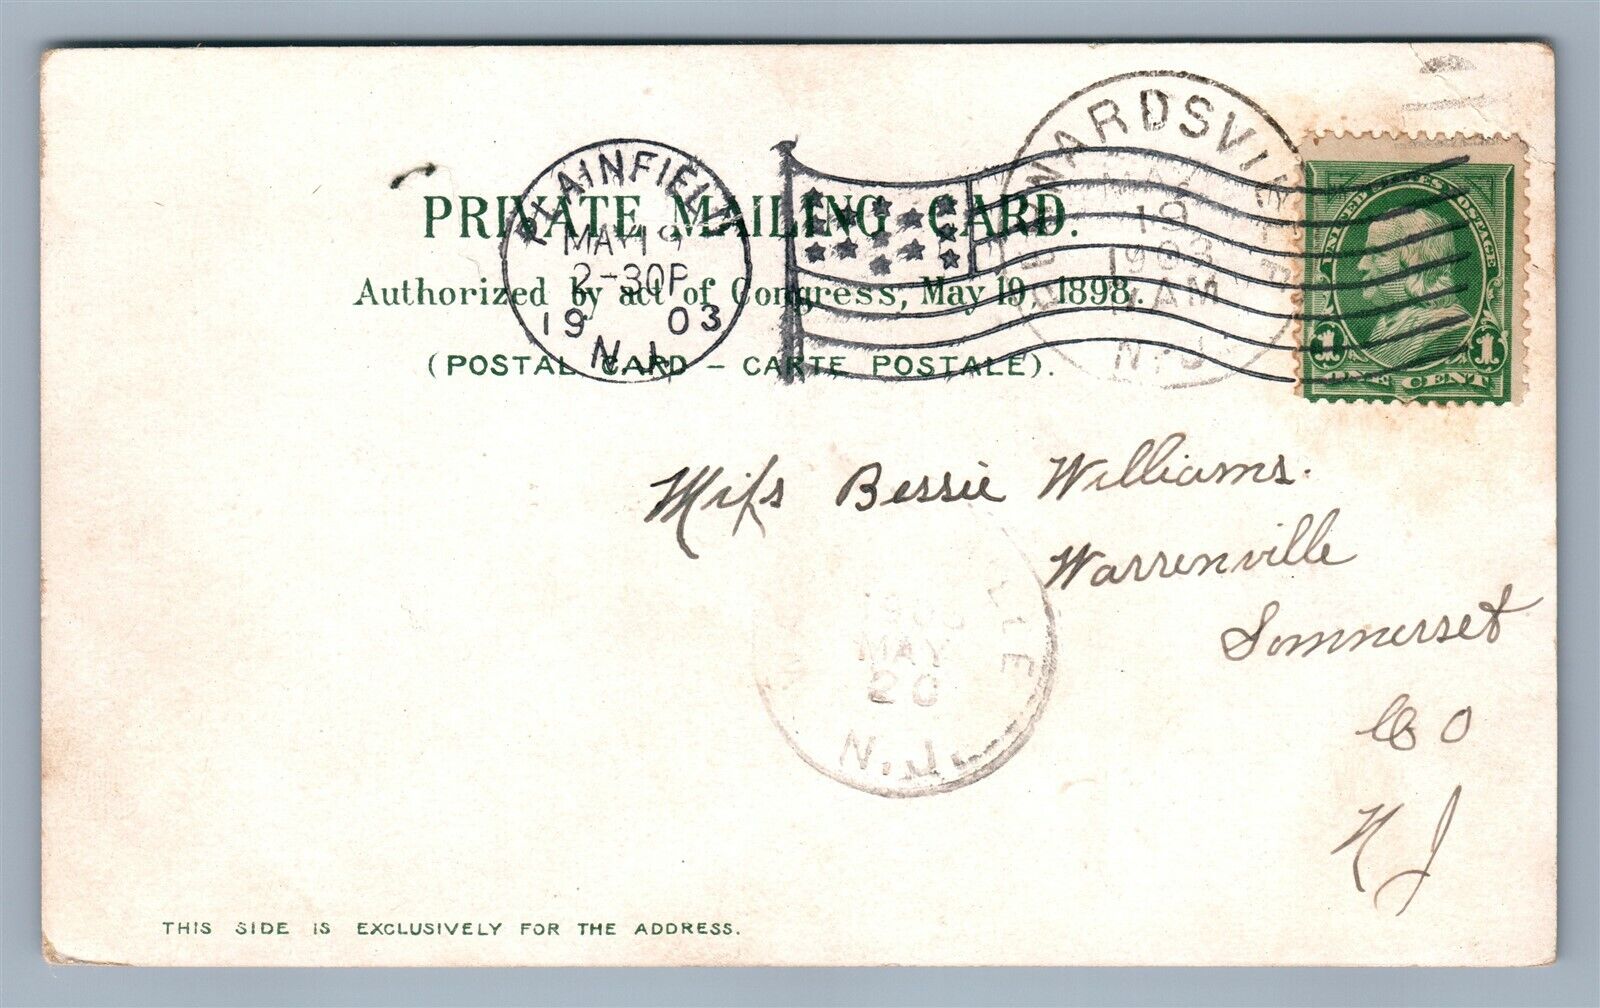 PRIVATE MAILING CARD.
Authorized by act of Congress, May 19, 1898.
(POSTAL CARD – CARTE POSTALE).
PLAINFIELD
MAY 19
2-30P
19 03
N.J.
19
1903
AM
N.J.
UNITED STATES POSTAGE
1 1
ONE CENT
Miss Bessie Williams.
Warrenville
Sommerset
Co
N J
MAY
20
N.J.
THIS SIDE IS EXCLUSIVELY FOR THE ADDRESS.